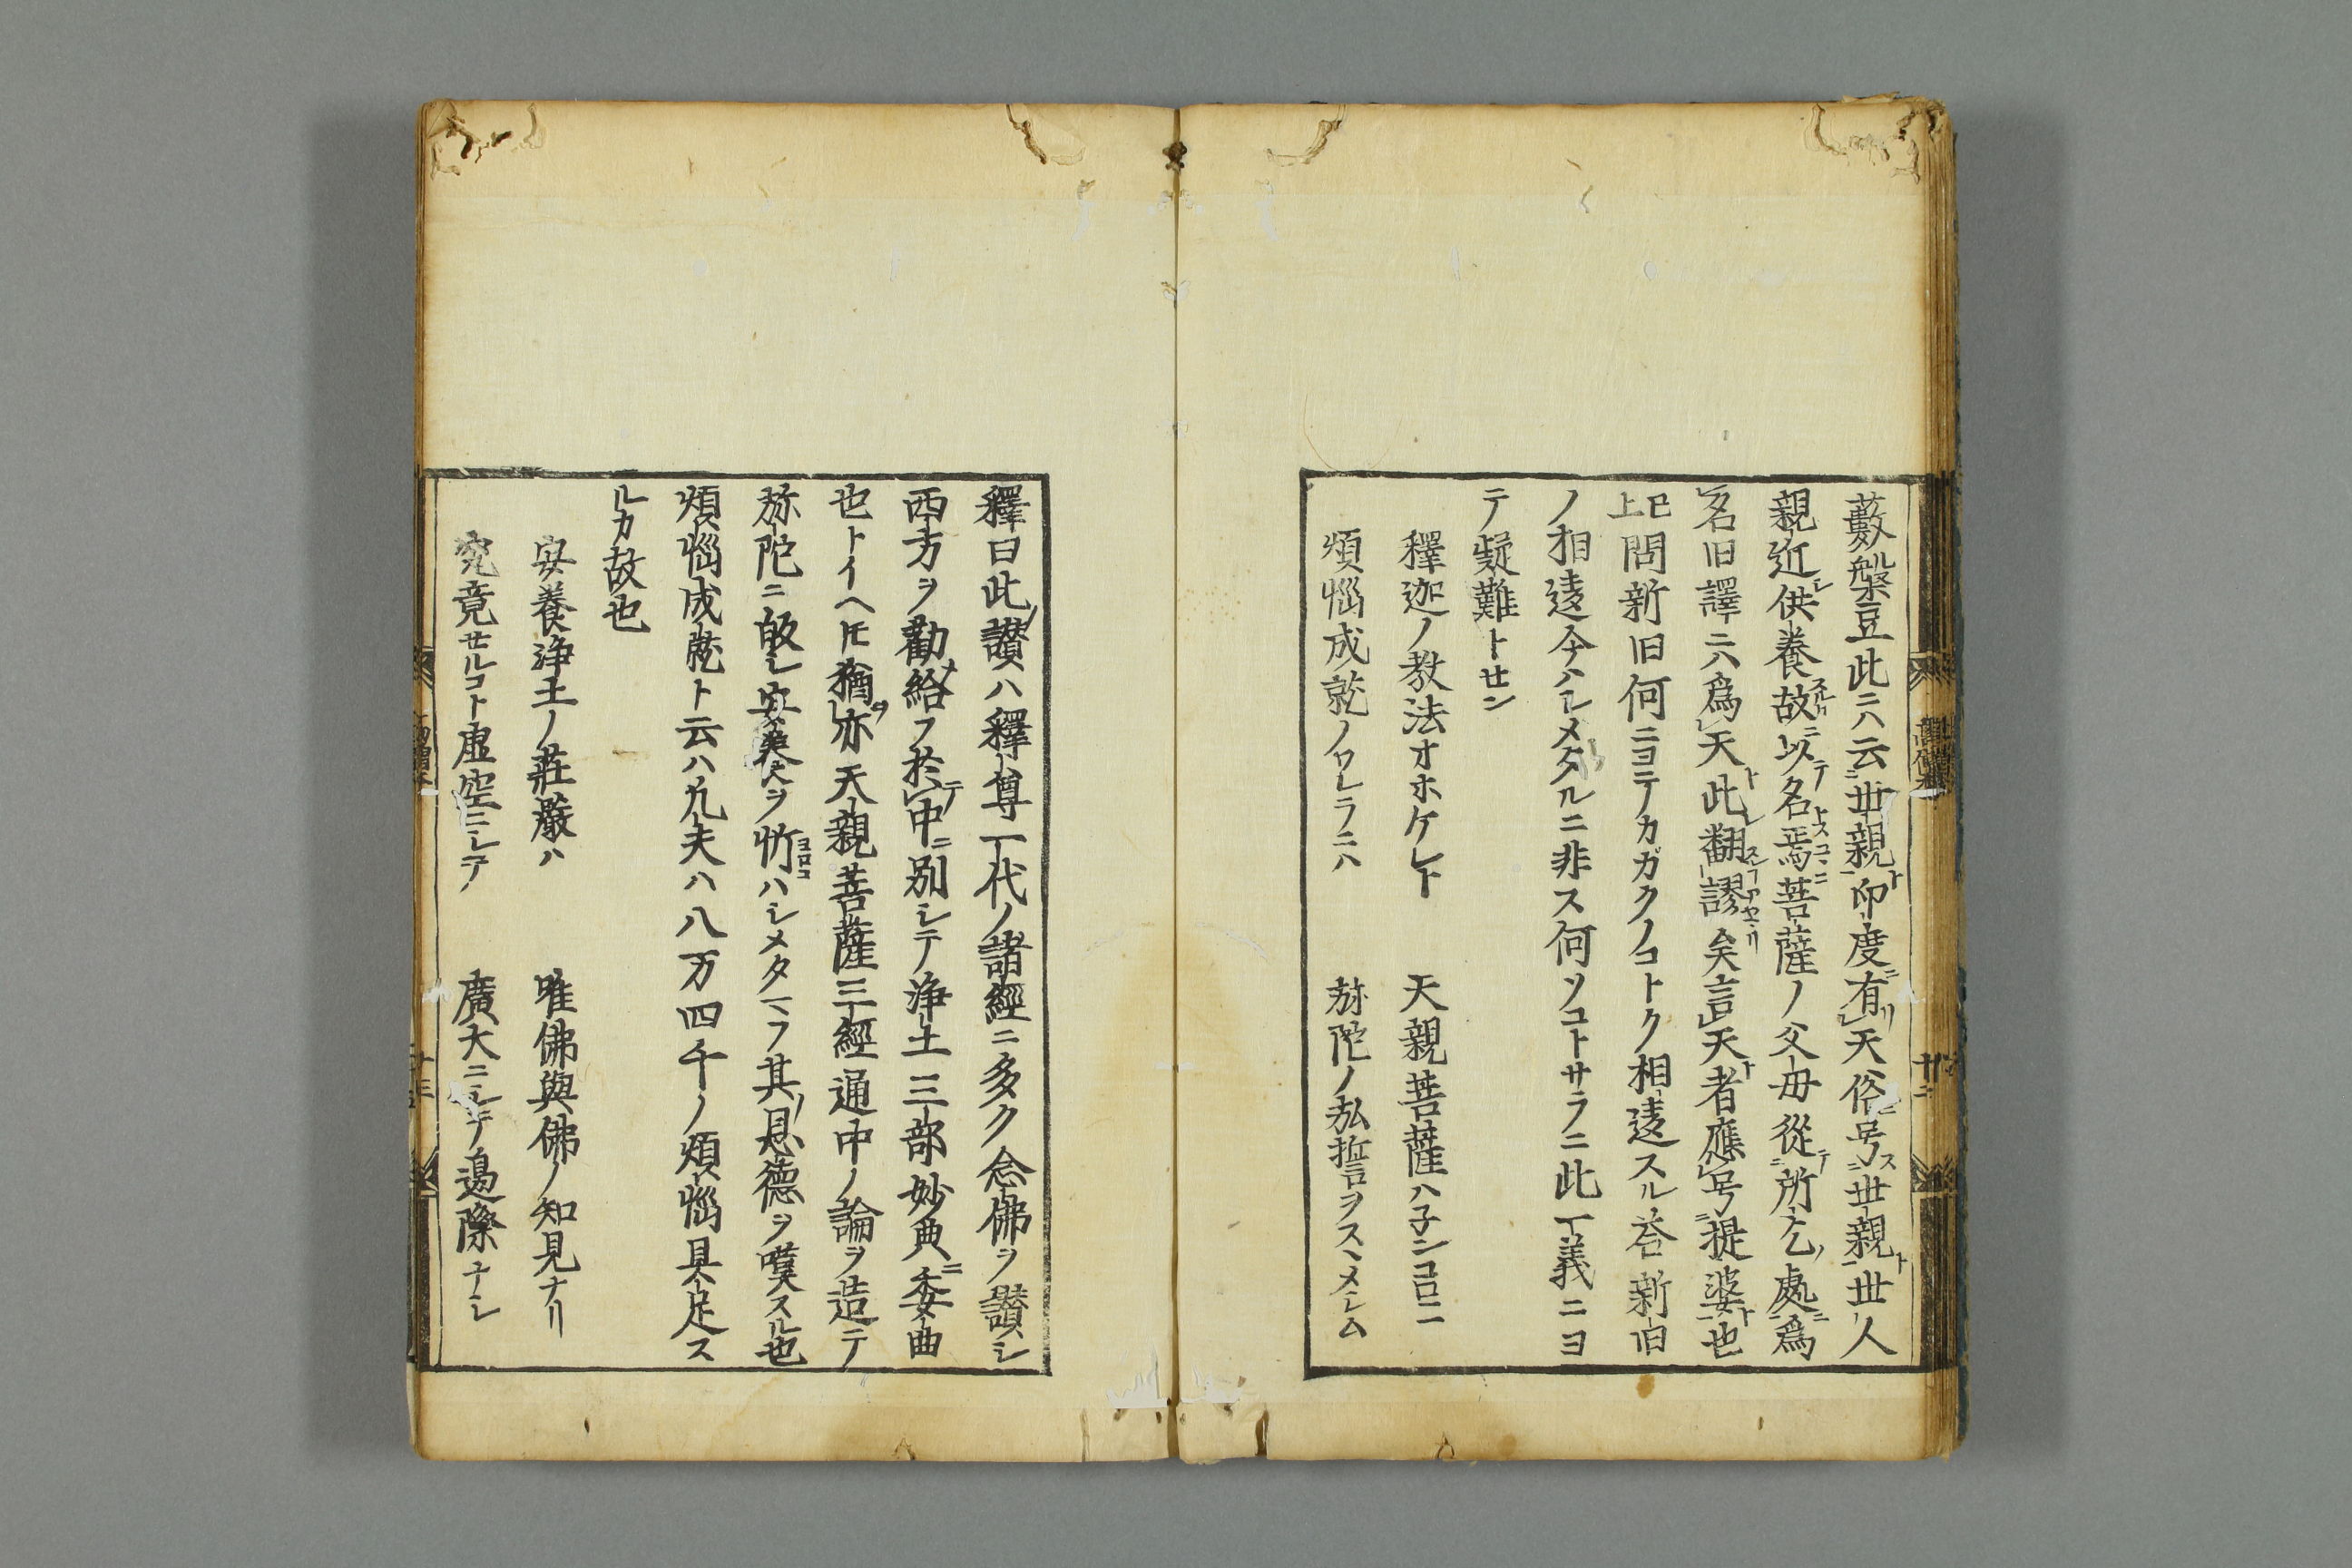 藪槃豆此ニハ云世親ト印度ニ有リ天俗号ス世親ト世人
親近シ供養スルカ故ニ以テ名トスコヽニ焉菩薩ノ父母從テ所乞ノ處ニ爲
名旧譯ニハ爲天ト此レ翻スルアヤマリ謬矣言天ト者應号提婆ト也
已上問新旧何ニヨテカカガクノコトク相違スル荅新旧
ノ相違今ハシメタルニ非ス何ソコトサラニ此一義ニヨ
テ疑難トセン
釋迦ノ教法オホケレト 天親菩薩ハ子ンコロニ
煩惱成就ノワレラニハ 弥陀ノ弘誓ヲスヽメシム
釋曰此ノ讃ハ釋尊一代ノ諸經ニ多ク念佛ヲ讃シ
西方ヲ勸メ給フ於テ中ニ別シテ浄土三部妙典ニ委曲
也トイヘトモ猶ヲ亦天親菩薩三經通申ノ論ヲ造テ
弥陀ニ皈シ安養ヲ忻ヨロコハシメタマフ其ノ恩德ヲ嘆スル也
煩惱成就ト云ハ凡夫ハ八万四千ノ煩惱具足ス
ルカ故也
安養浄土ノ莊嚴ハ 唯佛與佛ノ知見ナリ
究竟セルコト虚空ニシテ 廣大ニシテ邉際ナシ